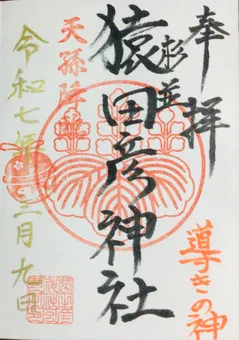 奉拝
杉並
猿田彦神社
導きの神
天孫降臨
令和七年三月九日